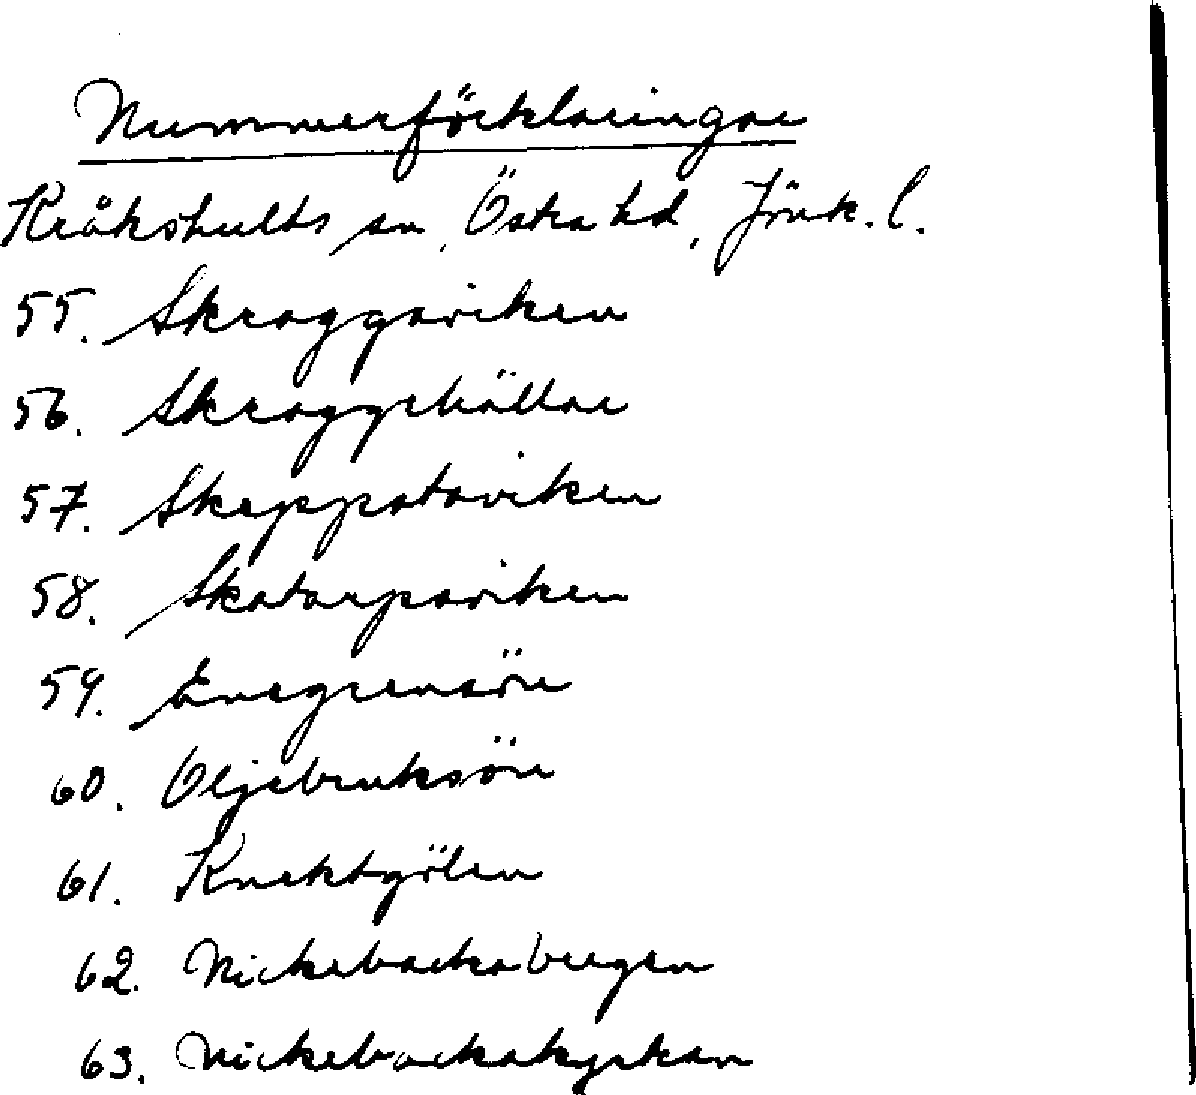 Nummerförklaringar
Kråkshults sn, Östra hd, Jönk. l.
55. Skraggaviken
56. Skraggehällar
57. Skeppstaviken
58. Skatarpaviken
59. Enegrensön
60. Oljebruksön
61. Knektgölen
62. Nickebackabergen
63. Nickebackakyrkan